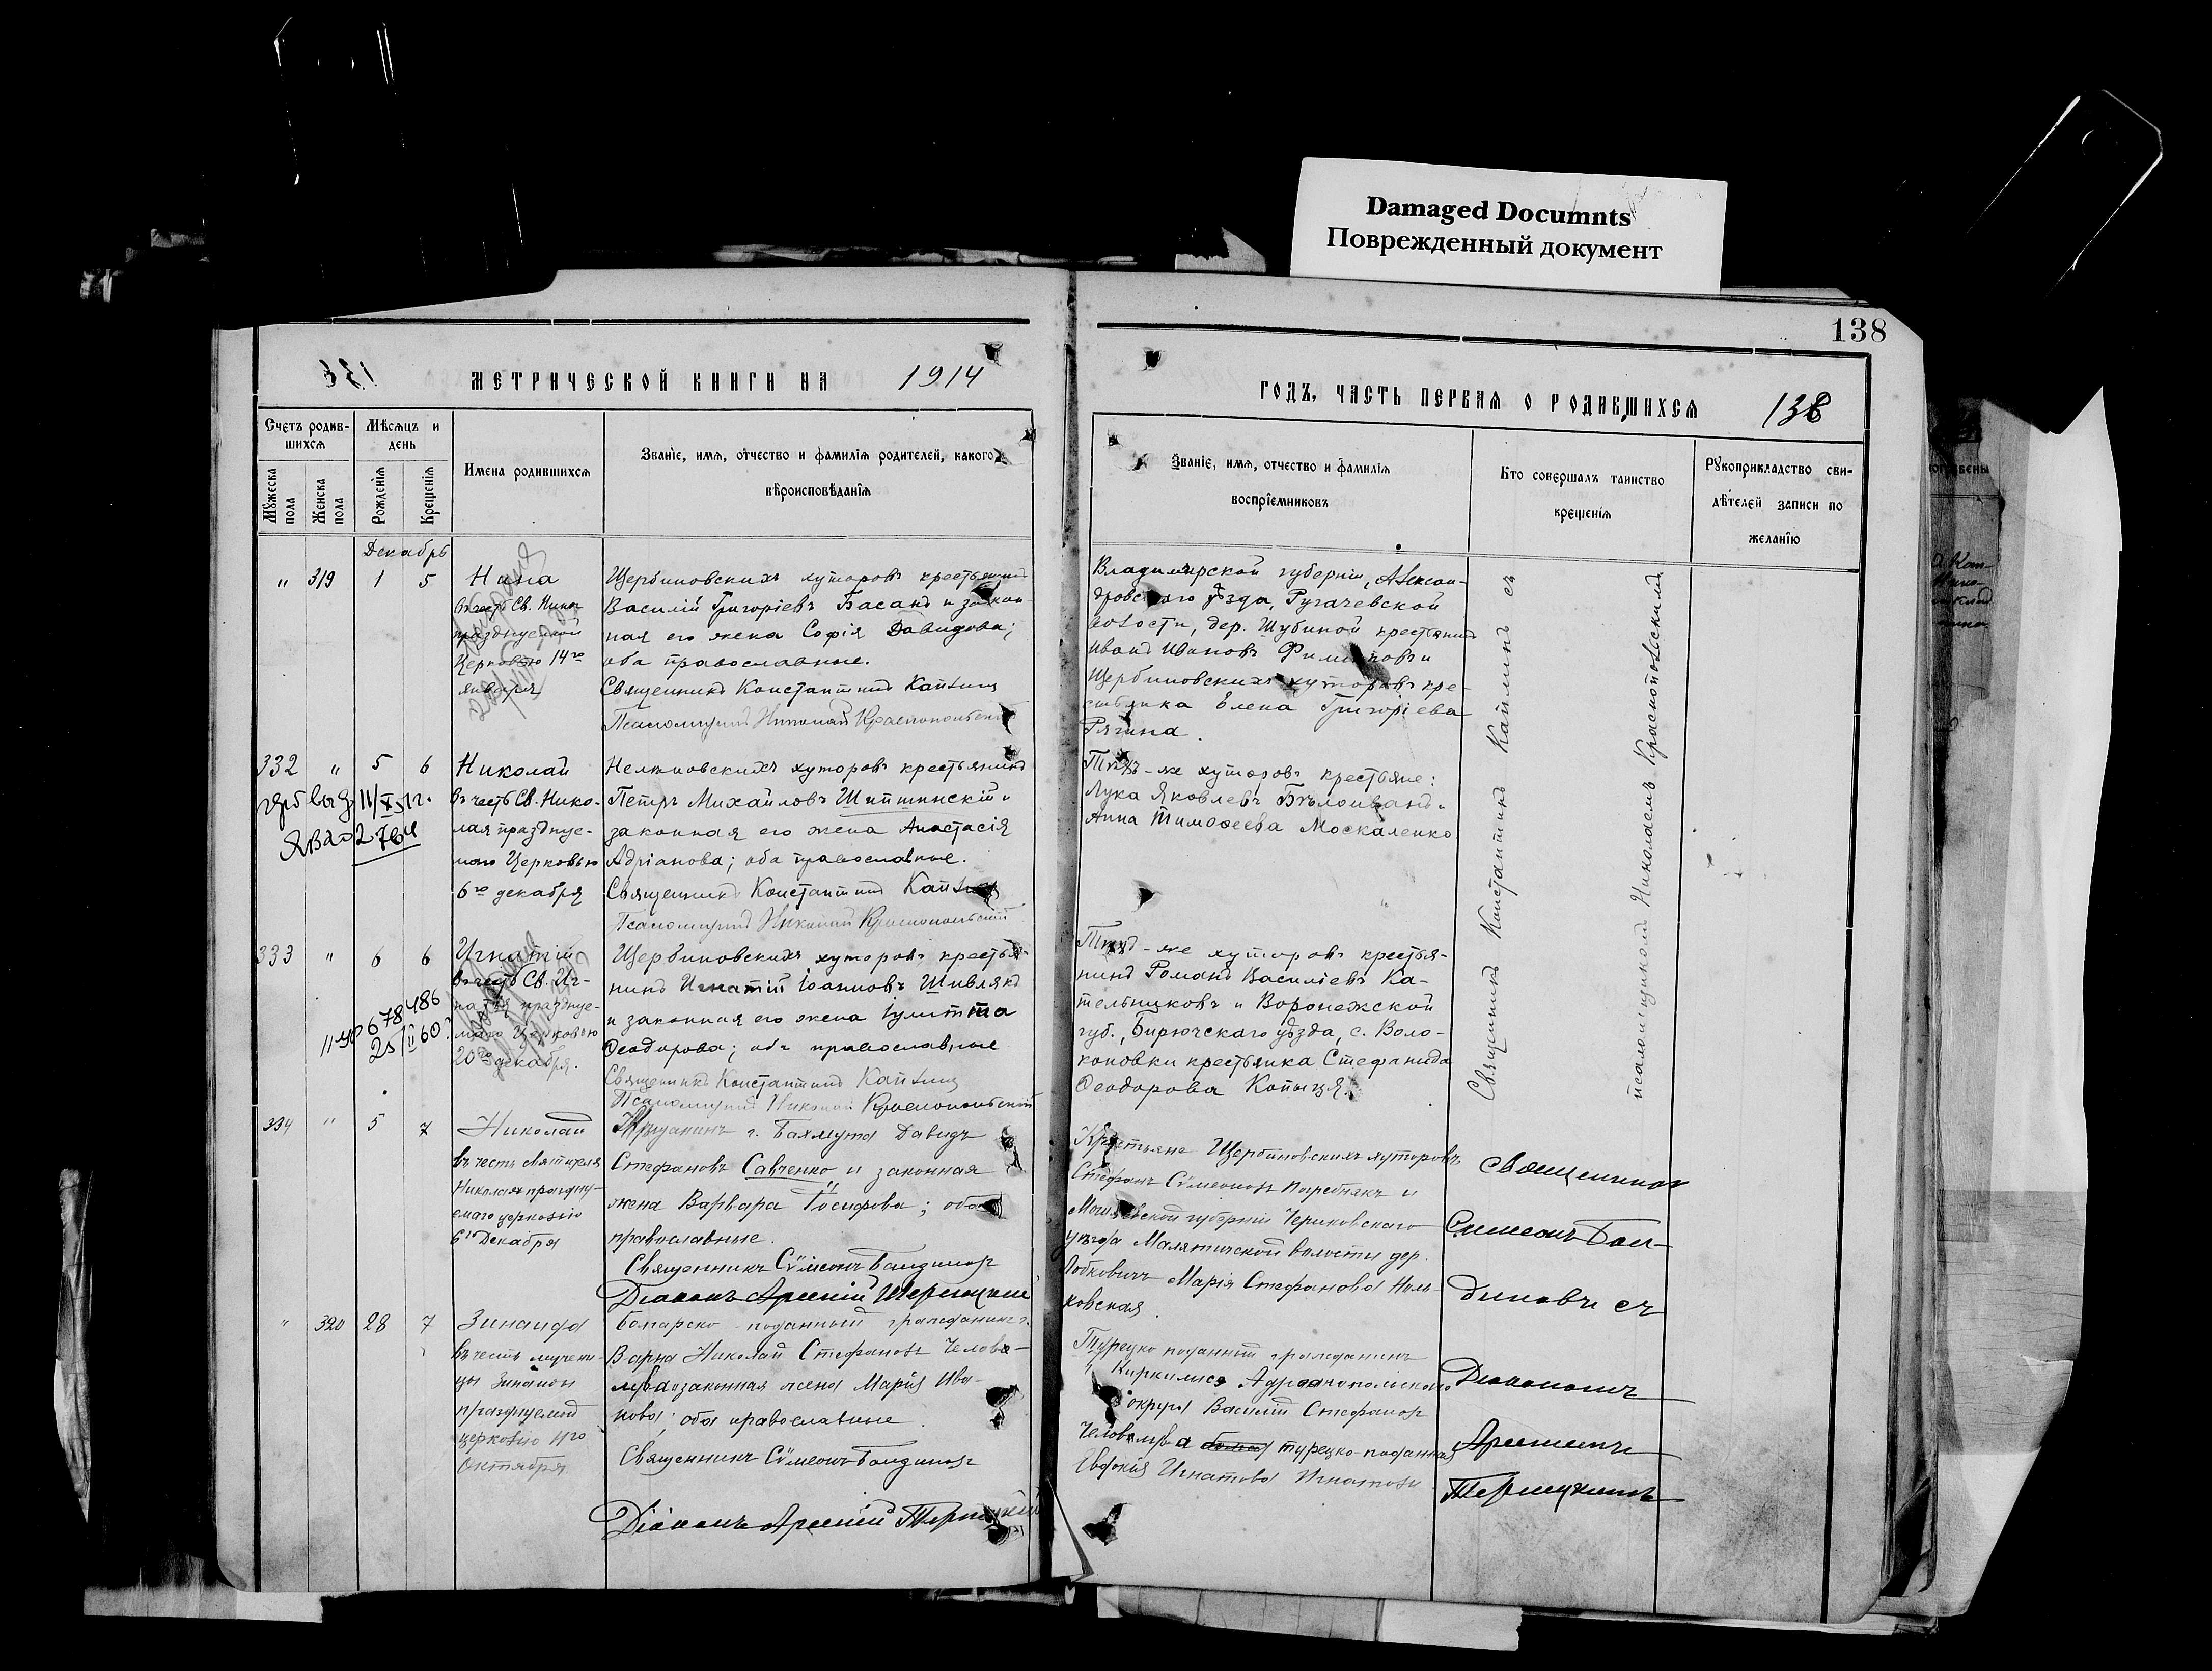 Damaged Documnts
Поврежденный документ
138
МЕТРИЧЕСКОЙ КНИГИ НА 1914
ГОДЪ, ЧАСТЬ ПЕРВАЯ О РОДИВШИХСЯ 138
Счетъ родив-
шихся
Мѣсяцъ и
день
Мужеска
пола
Женска
пола
Рожденія
Крещенія
Имена родившихся
Званіе, имя, отчество и фамилія родителей, какого
вѣроисповѣданія
Званіе, имя, отчество и фамилія
воспріемниковъ
Кто совершалъ таинство
крещенія
Рукоприкладство сви-
дѣтелей записи по
желанію
Декабрь
" 319 1 5
Нина
въ честь Св. Нины
празднуемой
Церковью 14го
января
Щербиновскихъ хуторовъ крестьянинъ
Василій Григоріевъ Басакъ и закон-
ная его жена Софія Давидова;
оба православные.
Священникъ Константинъ
Псаломщикъ Николай Краснопольскій
Владимірской губерніи, Алексан-
дровского уѣзда, Ругачевской
волости, дер. Шубиной крестьянинъ
Иванъ Ивановъ и
Щербиновскихъ хуторовъ кре-
стьянка Елена Григоріева
Рягина.
332 " 5 6
Николай
въ честь Св. Нико-
лая празднуе-
маго Церковью
6го декабря
Нелѣповскихъ хуторовъ крестьянинъ
Петръ Михайловъ Шипшинскій и
законная его жена Анастасія
Адріанова; оба православные.
Священникъ Константинъ
Псаломщикъ Николай Краснопольскій
Тѣхъ-же хуторовъ крестьяне:
Лука Яковлевъ Бѣлоиванъ и
Анна Тимоѳеева Москаленко
11/X 51г.
2764
333 " 6 6
Игнатій
въ честь Св. Иг-
натія празднуе-
маго Церковью
20го декабря.
Щербиновскихъ хуторовъ крестья-
нинъ Игнатій Іоанновъ Шивлякъ
и законная его жена Іулитта
Ѳеодорова; оба православные
Священникъ Константинъ
Псаломщикъ Николай Краснопольскій
Тѣхъ-же хуторовъ крестья-
нинъ Романъ Василіевъ Ка-
тельниковъ и Воронежской
губ., Бирючскаго уѣзда, с. Воло-
коновки крестьянка Стефанида
Ѳеодорова Копыця.
678486
25/II 60
Священникъ Константинъ съ
псаломщикомъ Николаемъ Краснопольскимъ
334 " 5 7
Николай
въ честь святителя
Николая праздну-
емаго церковію
6го Декабря
г. Бахмута Давидъ
Стефановъ Савченко и законная
жена Варвара Іосифова; оба
православные.
Священникъ Сѵмеонъ Бандиновъ
Діаконъ Арсеній
Крестьяне Щербиновскихъ хуторовъ
Стефанъ Сѵмеоновъ Погребнякъ и
Могилевской губерніи Чериковскаго
уѣзда Малятичской волости дер.
Марія Стефанова
ковская.
священникъ
Симеонъ Бан-
диновъ съ
Діакономъ
Арсеніемъ
" 320 28 7
Зинаида
въ честь мучени-
цы Зинаиды
празднуемой
церковію 11го
Октября
Болгарско-подданный гражданинъ г.
Варна Николай Стефановъ
законная жена Марія Ива-
нова, оба православные.
Священникъ Сѵмеонъ Бандиновъ
Діаконъ Арсеній
Турецко подданный гражданинъ
г. Киркилисе Адріанопольскаго
округа Василій Стефановъ
турецко-подданная
Евдокія Игнатова